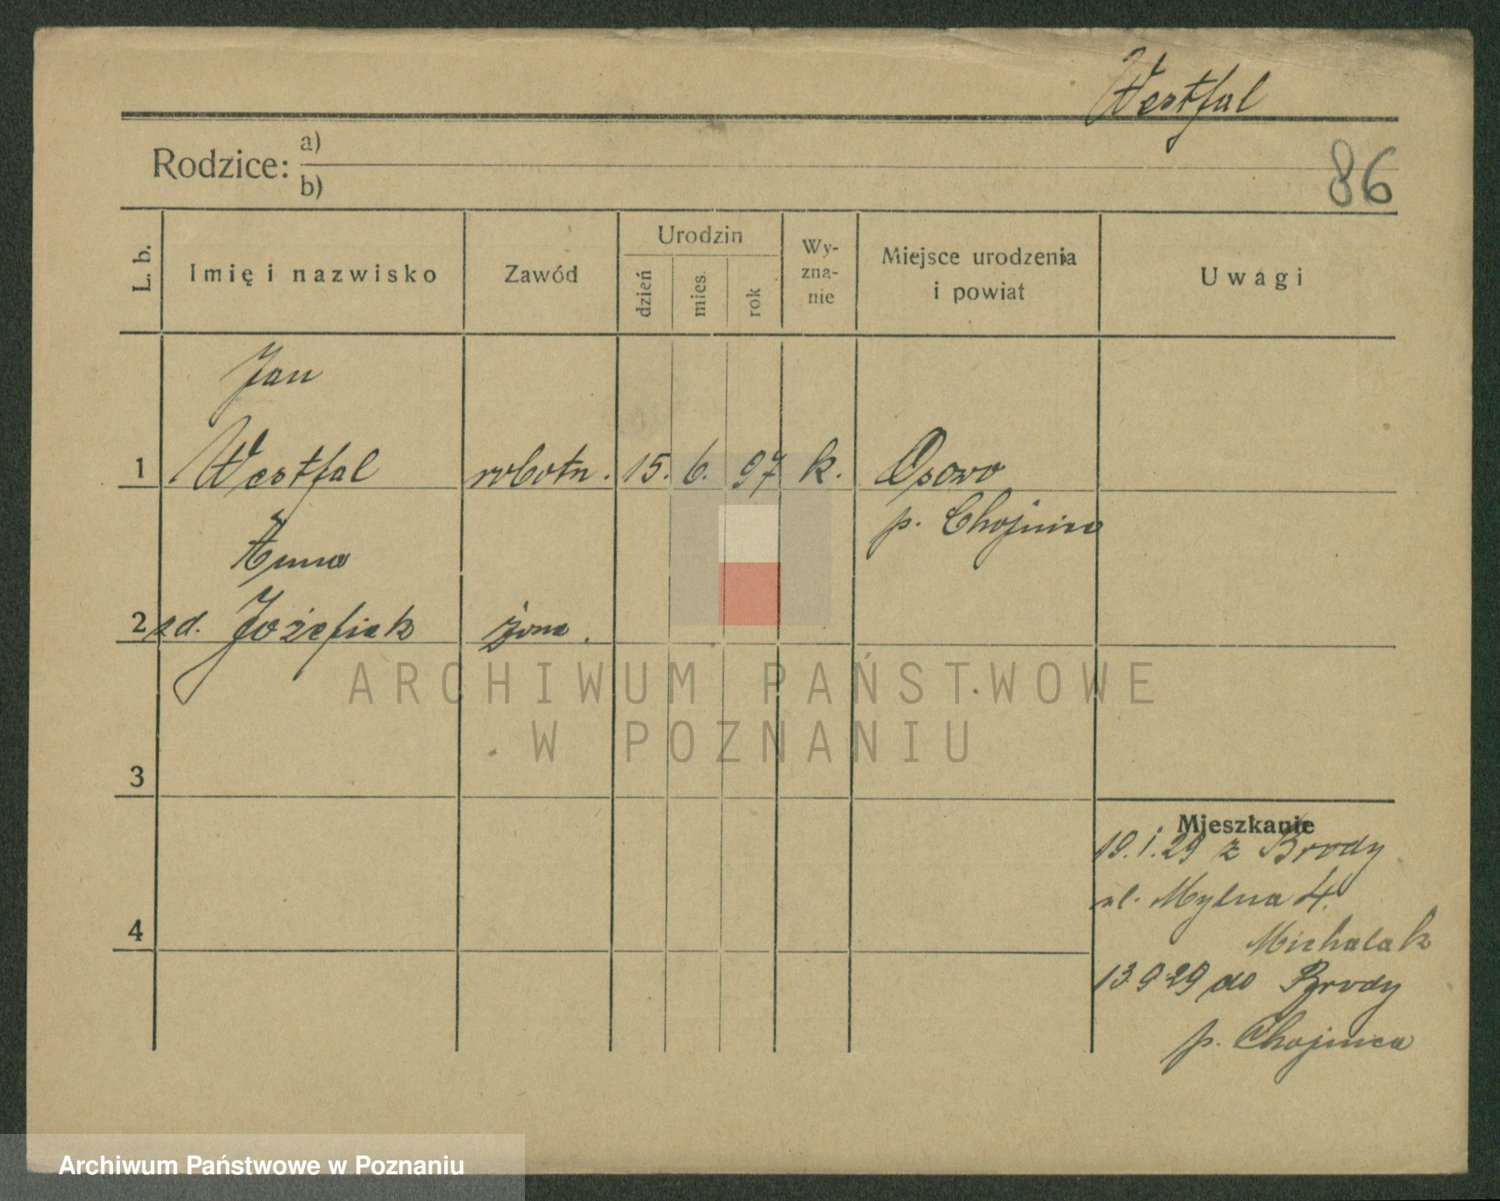 Westfal
Rodzice:
a)
b)
86
L. b.
Imię i nazwisko
Zawód
Urodzin
dzień
mies.
rok
Wy-
zna-
nie
Miejsce urodzenia
i powiat
Uwagi
Jan
1 Westfal robotn. 15. 6. 97 k. Osowo
p. Chojnice
Anna
2 zd. Józefiak żona.
3
4
Mieszkanie
19.1.29 z Brody
ul. Mylna 4.
Michalak
13.9.29 do Brody
p. Chojnice
ARCHIWUM PAŃSTWOWE
W POZNANIU
Archiwum Państwowe w Poznaniu